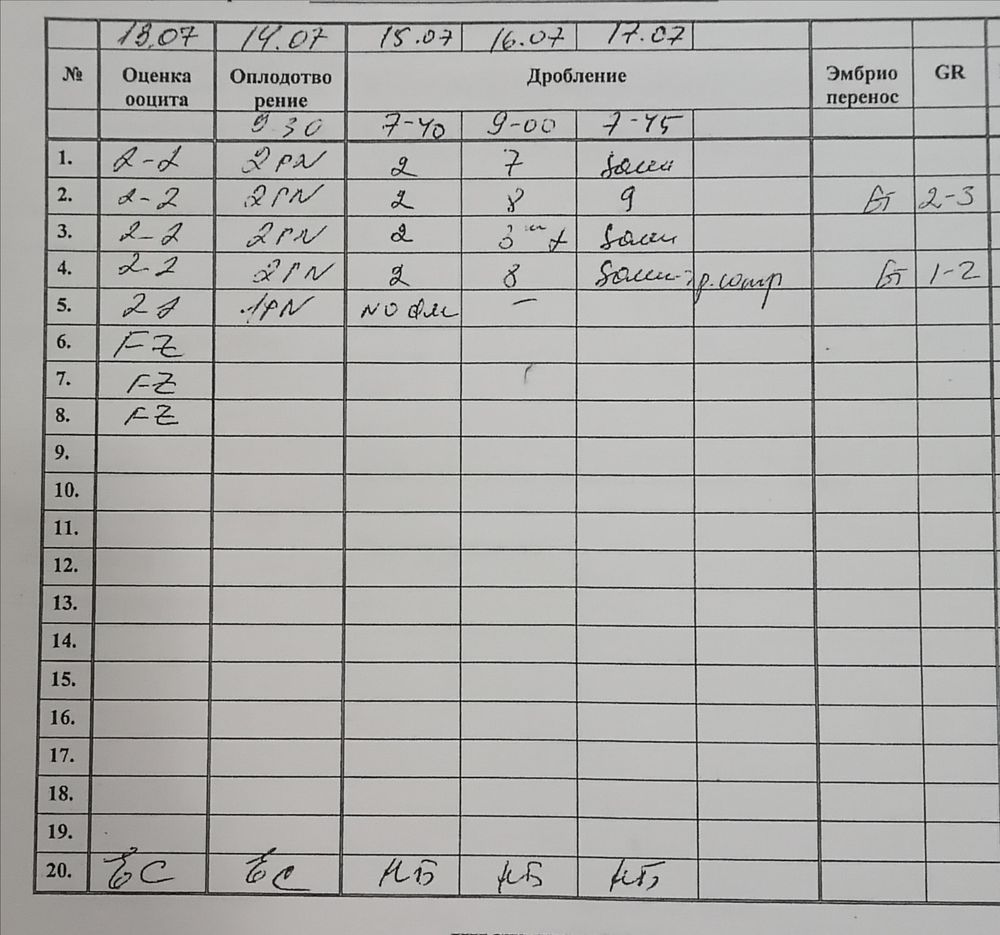 13.07 14.07 15.07 16.07 17.07
№ Оценка ооцита Оплодотво рение Дробление Эмбрио перенос GR
9 30 7-40 9-00 7-45
1. 2-2 2PN 2 7
2. 2-2 2PN 2 8 9 ET 2-3
3. 2-2 2PN 2
4. 2-2 2PN 2 8 ET 1-2
5. 22 1PN
6. FZ
7. FZ
8. FZ
9.
10.
11.
12.
13.
14.
15.
16.
17.
18.
19.
20. ЕС ЕС НБ НБ НБ